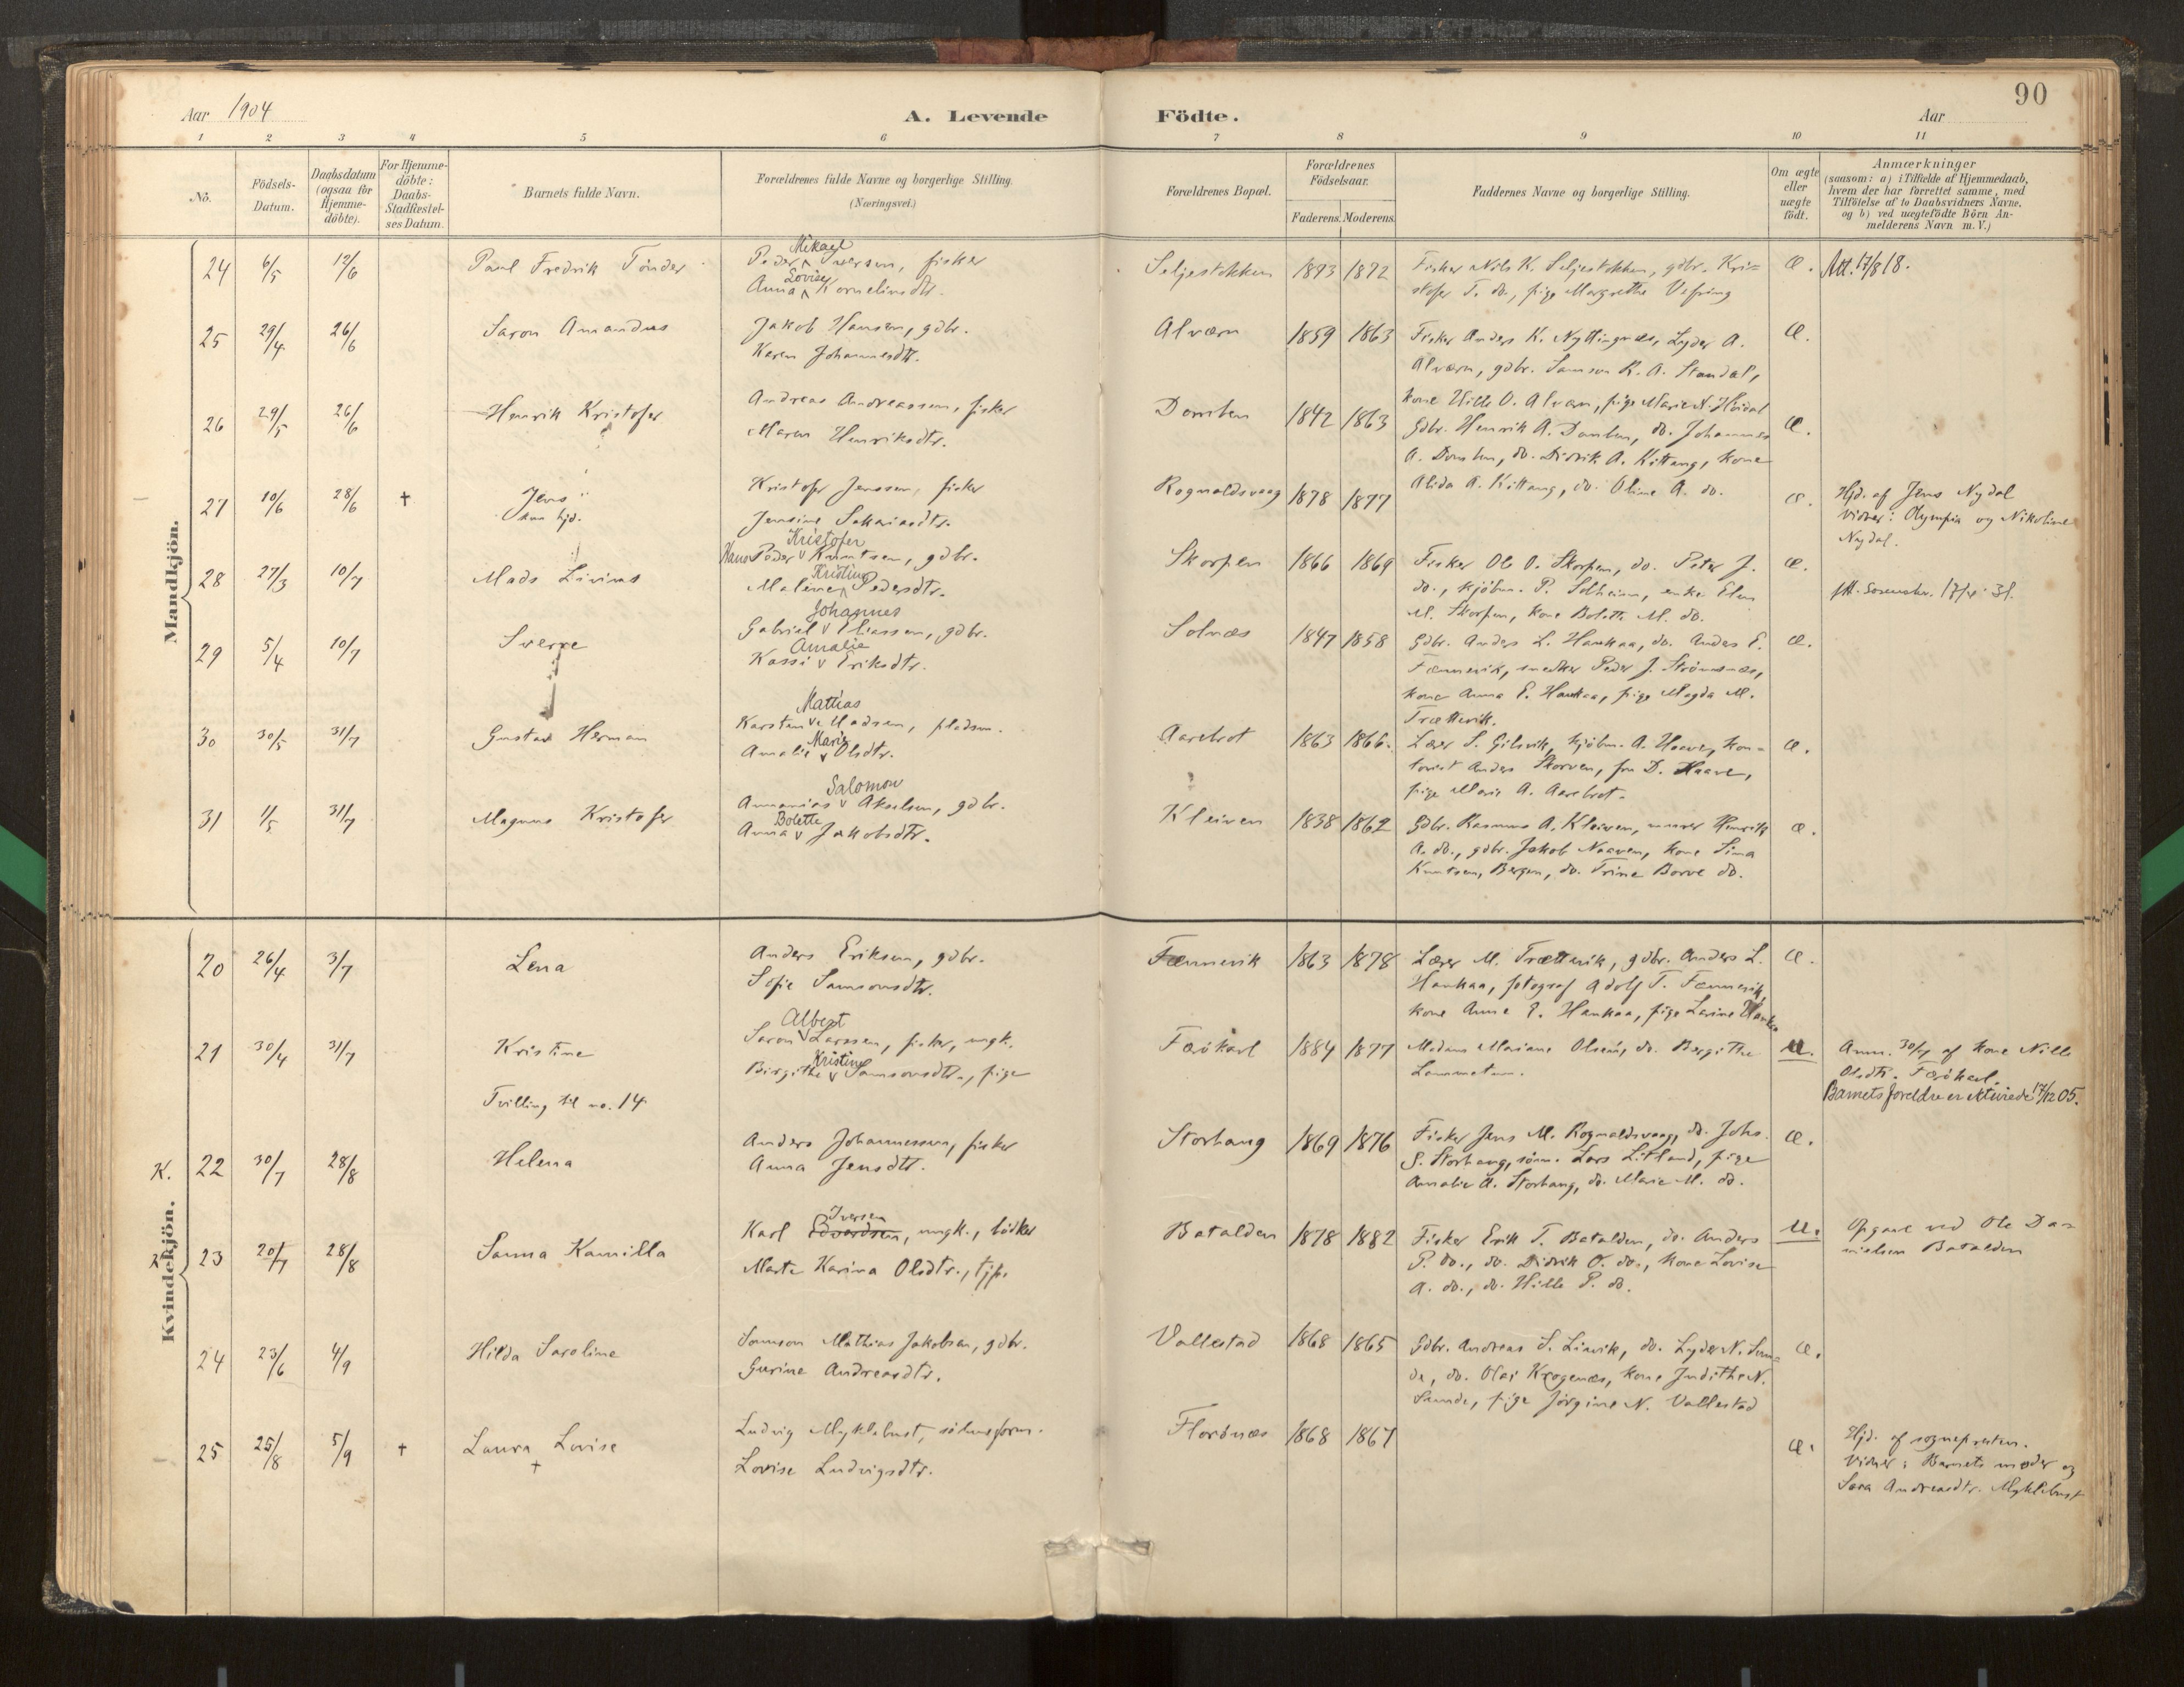 90
Aar 1904
A. Levende
Födte.
Aar
1 2 3 4 5 6 7 8 9 10 11
No.
Födsels-
Datum.
Daabsdatum
(ogsaa for
Hjemme-
döbte).
For Hjemme-
döbte:
Daabs-
Stadfæstel-
ses Datum.
Barnets fulde Navn.
Forældrenes fulde Navne og borgerlige Stilling.
(Næringsvei.)
Forældrenes Bopæl.
Forældrenes
Födselsaar.
Faderens. Moderens.
Faddernes Navne og borgerlige Stilling.
Om ægte
eller
uægte
födt.
Anmærkninger
(saasom: a) i Tilfælde af Hjemmedaab,
hvem der har forrettet samme, med
Tilföielse af to Daabsvidners Navne.
og b) ved uægtefödte Börn An-
melderens Navn m. V.)
Mandkjön.
24 6/5 12/6 Paul Fredrik Tönder
Mikael
Peder Iversen, fisker
Lovise
Anna Korneliusdtr.
Seljestokken 1873 1872
Fisker Nils K. Seljestokken, gdbr. Kri-
stofer T. do., pige Margrethe Vefring
Æ. Att. 17/8 18.
25 29/4 26/6 Saron Amandus
Jakob Hansen, gdbr.
Karen Johannesdtr.
Alværn 1859 1863
Fisker Anders K. Nyttingnæs, Lyder A.
Alværn, gdbr. Samson R. A. Standal,
kone Hille O. Alværn, pige Marie N. Høidal
Æ.
26 29/5 26/6 Henrik Kristofer
Andreas Andreassen, fisker
Maren Henriksdtr.
Domben 1842 1863
Gdbr. Henrik A. Domben, do. Johannes
A. Domben, do. Didrik A. Kittang, kone
Alida A. Kittang, do. Oline A. do.
Æ.
27 10/6 28/6 † Jens
kun hjd.
Kristofer Jenssen, fisker
Jensine Sakariasdtr.
Rognaldsvaag 1878 1877
Æ.
Hjd. af Jens Nydal
Vidner: Olympia og Nikoline
Nydal.
28 27/3 10/7 Mads Livius
Kristofer
Hans Peder Knutsen, gdbr.
Kristine
Malene Pedersdtr.
Skorpen 1866 1869
Fisker Ole O. Skorpen, do. Peter J.
do., kjöbm. P. Solheim, enke Elen
M. Skorpen, kone Bolette M. do.
Æ.
29 5/4 10/7 Sverre
Johannes
Gabriel Eliassen, gdbr.
Amalie
Kassi Eriksdtr.
Solnæs 1847 1858
Gdbr. Anders L. Haukaa, do. Anders E.
Fænnevik, snedker Peder J. Strömsnæs,
kone Anna E. Haukaa, pige Magda M.
Trættevik.
Æ.
30 30/5 31/7 Gustav Herman
Mattias
Karsten Madsen, pladsm.
Marie
Amalie Olsdtr.
Aarebrot 1863 1866.
Lærer S. Gilsvik, kjöbm. A. Haave, kon-
torist Anders Skorven, fru D. Haave,
pige Marie A. Aarebrot.
Æ.
31 1/5 31/7 Magnus Kristofer
Salomon
Annanias Akselsen, gdbr.
Bolette
Anna Jakobsdtr.
Kleiven 1838 1862
Gdbr. Rasmus A. Kleiven, murer Henrik
A. do., gdbr. Jakob Naaven, kone Sina
Knutsen, Bergen, do. Trine Borve do.
Æ.
Kvindekjön.
20 26/4 3/7 Lena
Anders Eriksen, gdbr.
Sofie Samsonsdtr.
Fænnevik 1863 1878
Lærer M. Trættevik, gdbr. Anders L.
Haukaa, fotograf Adolf T. Fænnevik,
kone Anna E. Haukaa, pige Larine Haukaa
Æ.
21 30/4 31/7 Kristine
Albert
Saron Larssen, fisker, ungk.
Kristine
Birgithe Samsonsdtr., pige
Tvilling til no. 14
Færökarl 1884 1877
Madam Mariane Olsen, do. Bergithe
U.
Anm. 30/7 af kone Nille
Olsdtr. Færökarl.
Barnets foreldre er ektviede 17/12 05.
K. 22 30/7 28/8 Helena
Anders Johannessen, fisker
Anna Jensdtr.
Storhaug 1869 1876
Fisker Jens M. Rognaldsvaag, do. Johs.
S. Storhaug, sönn. Lars Litland, pige
Amalie A. Storhaug, do. Marie M. do.
Æ.
23 20/7 28/8 Sanna Kamilla
Iversen
Karl Edvardsen, ungk., bödker
Marte Karina Olsdtr., tjp.
Batalden 1878 1882
Fisker Erik T. Batalden, do. Anders
P. do., do. Didrik O. do., kone Lovise
A. do., do. Hille P. do.
U.
Opgave ved Ole Da-
nielsen Batalden
24 23/6 4/9 Hilda Saroline
Samson Mathias Jakobsen, gdbr.
Gurine Andreasdtr.
Vallestad 1868 1865
Gdbr. Andreas S. Liavik, do. Lyder N. Sun-
de, do. Olai Krogenæs, kone Judithe N.
Sunde, pige Jörgine N. Vallestad
Æ.
25 25/8 5/9 † Laura Lovise
†
Ludvig Myklebust, sölmsform.
Lovise Ludvigsdtr.
Floröнæs 1868 1867
Æ.
Hjd. af sognepresten.
Vidner: Barnets moder og
Sara Andreasdtr. Myklebust